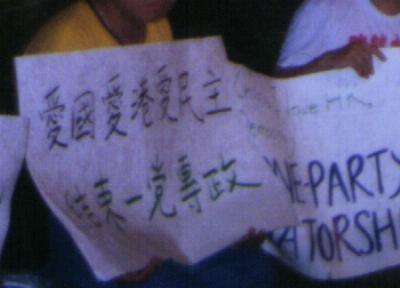 愛國愛港愛民主
結束一党專政
love HK
NE-PARTY
ATORSH